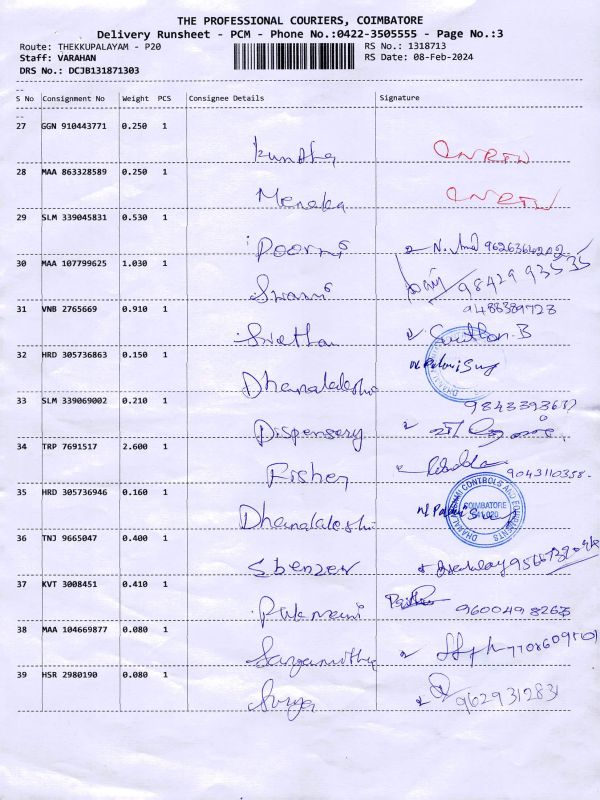 THE PROFESSIONAL COURIERS, COIMBATORE
Delivery Runsheet - PCM - Phone No.:0422-3505555 - Page No.:3
Route: THEKKUPALAYAM - P20
RS No.: 1318713
Staff: VARAHAN
RS Date: 08-Feb-2024
DRS No.: DCJB131871303
S No Consignment No Weight PCS Consignee Details Signature
27 GGN 910443771 0.250 1
28 MAA 863328589 0.250 1
Menaka
29 SLM 339045831 0.530 1
Poorni
30 MAA 107799625 1.030 1
Swami 98429 93535
31 VNB 2765669 0.910 1
9488389723
Swetha
32 HRD 305736863 0.150 1
Dhanalakshmi
33 SLM 339069002 0.210 1
Dispensery
34 TRP 7691517 2.600 1
Fisher 9043110358
35 HRD 305736946 0.160 1
Dhanalakshmi COIMBATORE
36 TNJ 9665047 0.400 1
Ebenzer
37 KVT 3008451 0.410 1
Rukmani 9600498263
38 MAA 104669877 0.080 1
39 HSR 2980190 0.080 1
Surya 9629312831